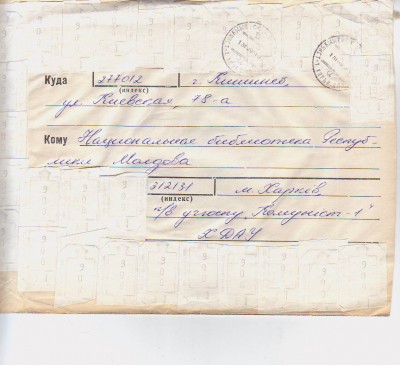 Куда 277012 г. Кишинев,
(индекс)
ул Киевская, 78-а
Кому Национальная библиотека Респуб-
лики Молдова
312131 м. Харків,
(индекс)
п/в учгоспу „Комуніст-1"
ХДАУ